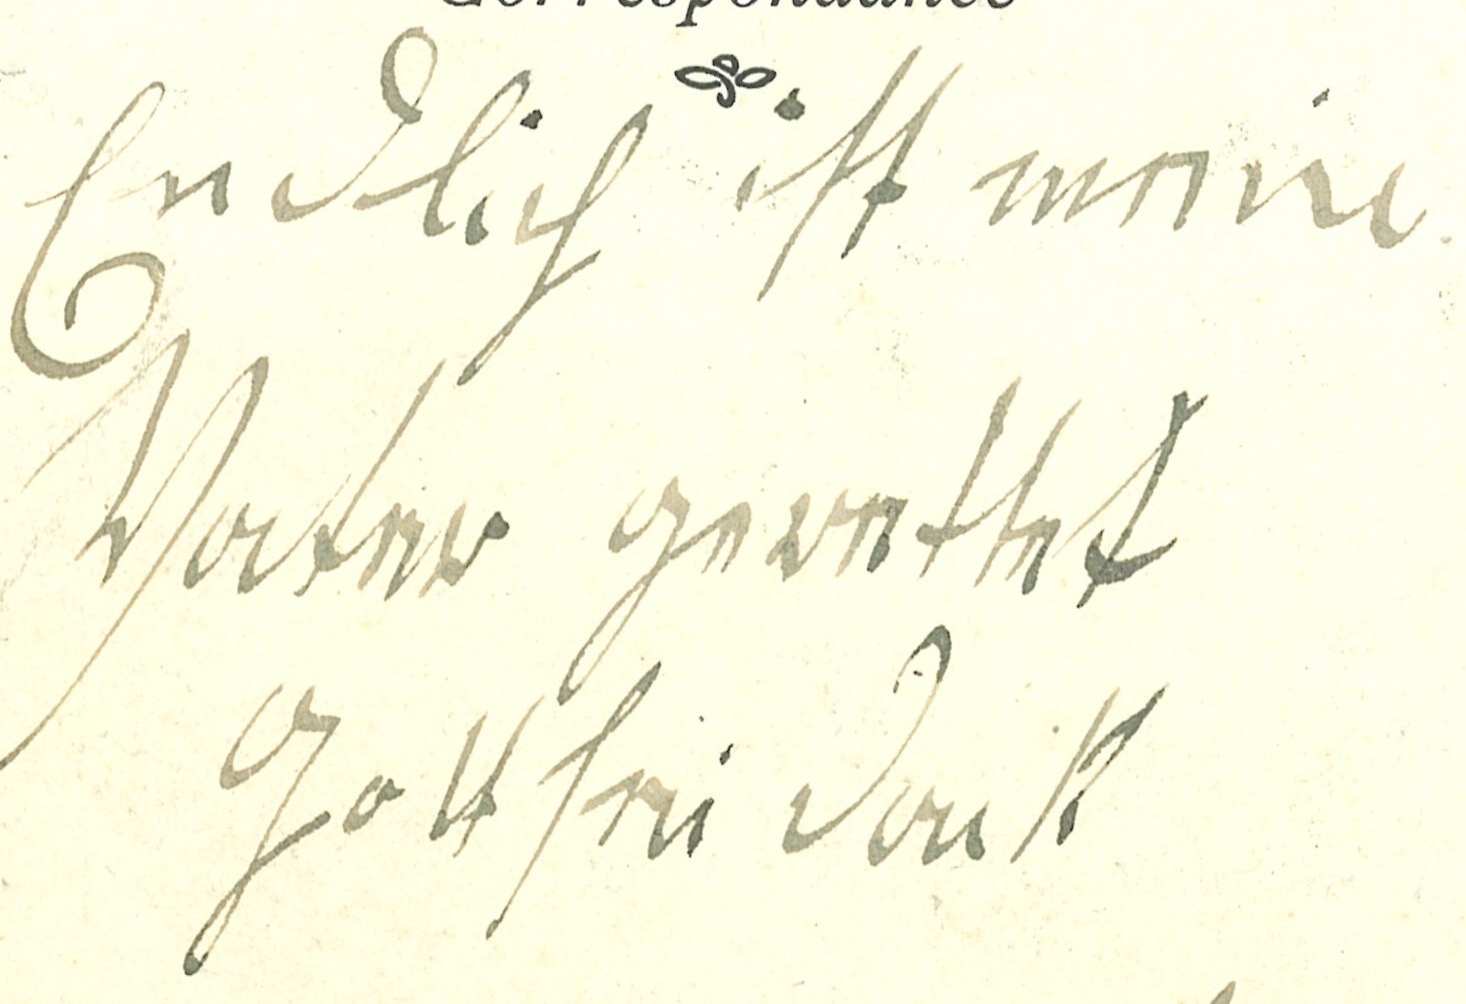 Correspondance
Endlich ist meine
Vater gerettet
Gott sei dank